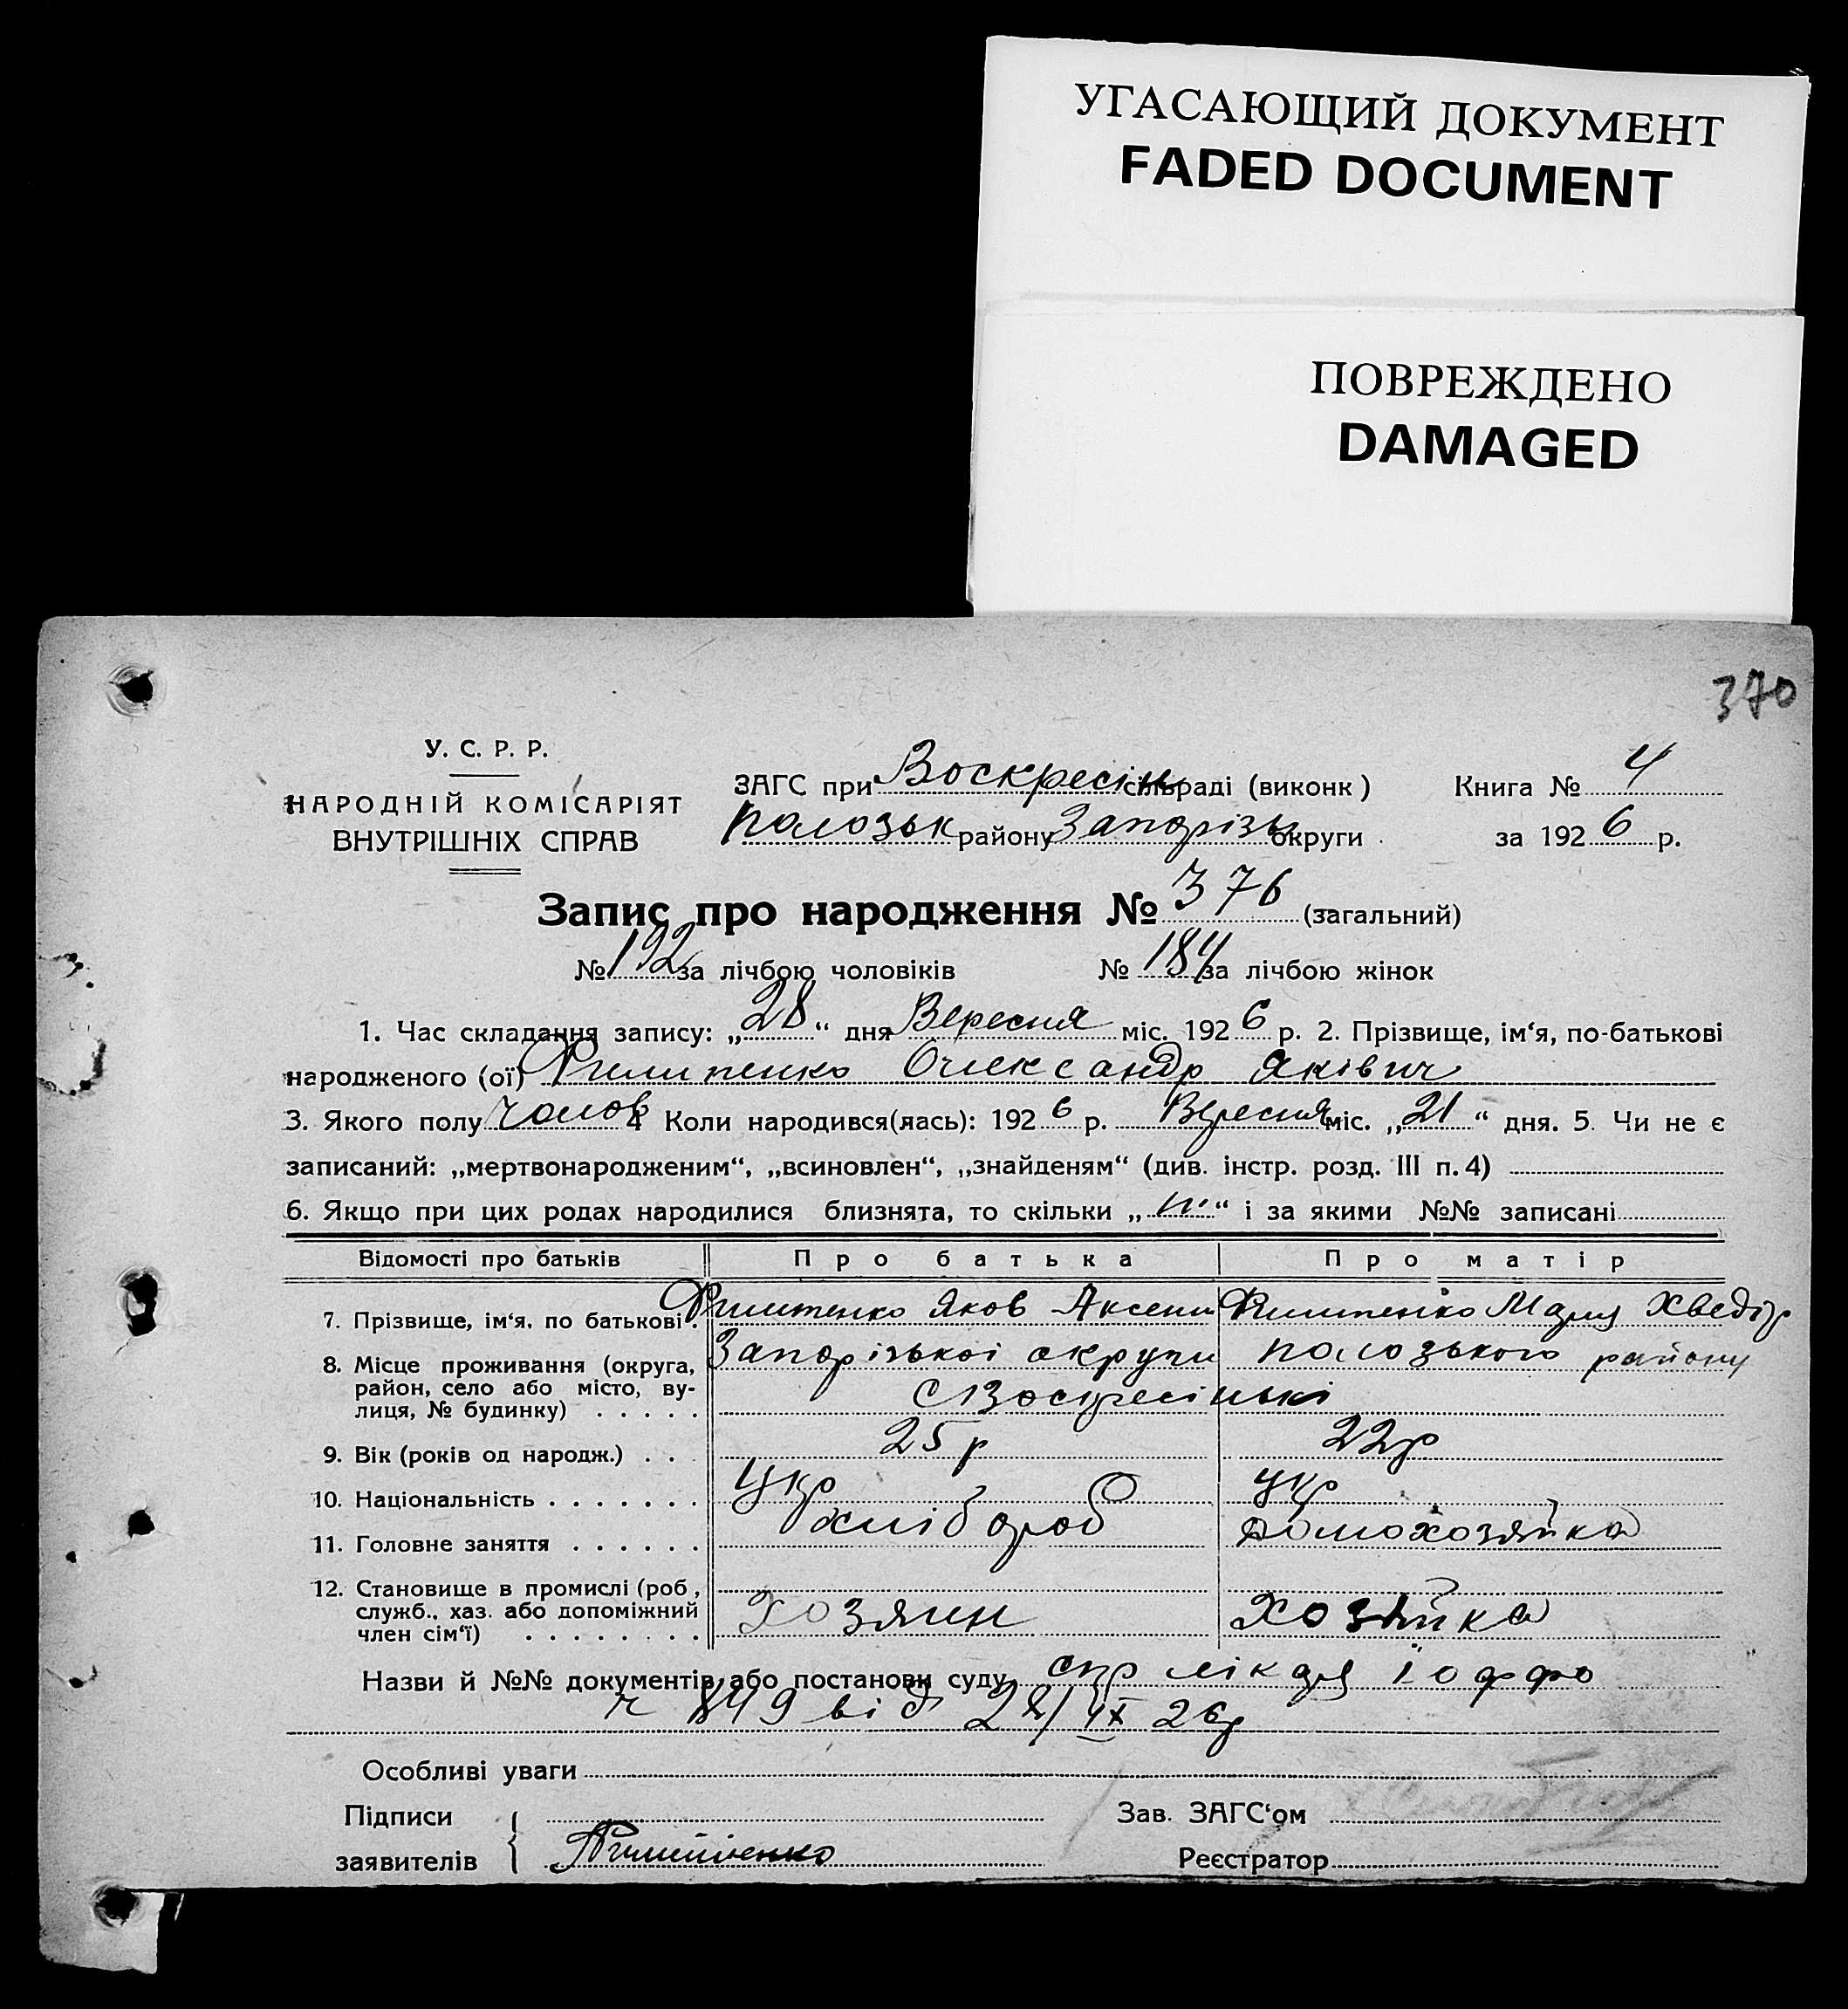 УГАСАЮЩИЙ ДОКУМЕНТ
FADED DOCUMENT
ПОВРЕЖДЕНО
DAMAGED
370
У. С. Р. Р.
НАРОДНІЙ КОМІСАРІЯТ
ВНУТРІШНІХ СПРАВ
ЗАГС при Воскресін сільраді (виконк) Книга № 4
Полозьк району Запорізьк округи за 1926 р.
Запис про народження № 376 (загальний)
№ 192 за лічбою чоловіків № 184 за лічбою жінок
1. Час складання запису: „28“ дня Вересня міс. 1926 р. 2. Прізвище, ім‘я, по-батькові
народженого (ої) Филипенко Олександр Яківич
3. Якого полу Чолов 4 Коли народився(лась): 1926 р. Вересня міс. „21“ дня. 5. Чи не є
записаний: „мертвонародженим“, „всиновлен“, „знайденям“ (див. інстр. розд. III п. 4)
6. Якщо при цих родах народилися близнята, то скільки „ “ і за якими №№ записані
Відомості про батьків Про батька Про матір
7. Прізвище, ім‘я, по батькові. Филипенко Яков Аксени Филипенко Мария Хведір
8. Місце проживання (округа, Запорізькоі округи Полозького району
район, село або місто, ву- с Воскресінькі
лиця, № будинку) . . . . .
9. Вік (років од народж.) . . . 25 р 22 р
10. Національність . . . . . . . Укр Укр
11. Головне заняття . . . . . . Хлібороб домохозяйка
12. Становище в промислі (роб,
служб., хаз. або допоміжний Хозяин Хозяйка
член сім‘ї) . . . . . . . .
Назви й №№ документів або постанови суду спр лікаря Іоффо
ч 849 від 28/IX 26р
Особливі уваги
Підписи Зав. ЗАГС‘ом
заявителів { Филипенко Реєстратор